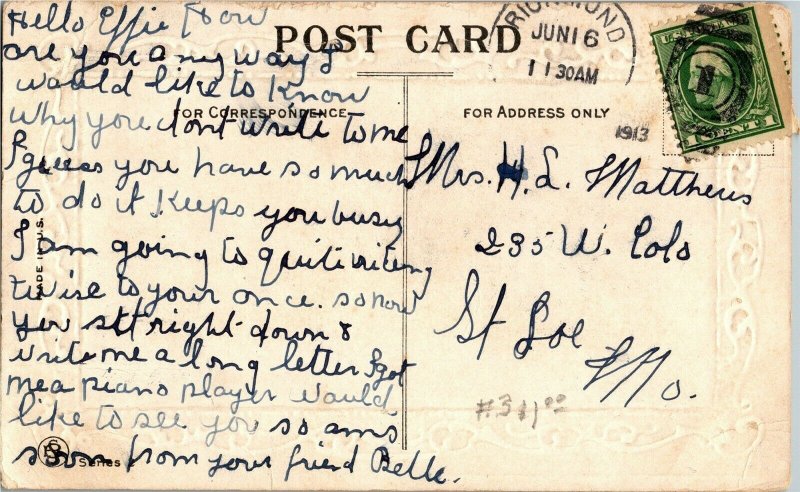 POST CARD
FOR CORRESPONDENCE
FOR ADDRESS ONLY
MADE IN U.S.
Series
RICHMOND
JUN 16
11 30 AM
1913
U.S. POSTAGE
1 CENT 1
Hello Effie How
are you any way I
would like to know
why you dont write to me
I guess you have so much
to do it keeps you busy
I am going to quit writeng
twise to your once. so now
you sit right down &
write me a long letter I got
me a piano player would
like to see you so ans
soon from your friend Belle.
Mrs. H. L. Matthews
235 W. Colo
St Joe
Mo.